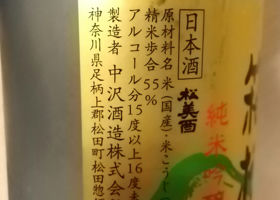 純米吟
松美酉
日本酒
原材料名 米(国産)・米こうじ
精米歩合 55%
アルコール分15度以上16度未
製造者 中沢酒造株式会
神奈川県足柄上郡松田町松田惣